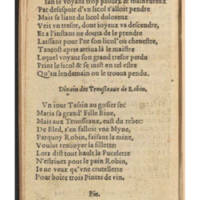 Tant se voyant trop pauvre & malheureux
Par desespoir d'un lycol s'alloit pendre
Mais se iiant du licol dolcence
Veit un tresor, dont joyeux va descendre,
Et à l'instant ne doute de le prendre
Laissant pour l'or son licol ou chenestre,
Tantost apres arriva là le maistre
Lequel voyant son grand tresor perdu
Print le licol & se mit en tel estre
Qu'au lendemain on le trouva pendu.
Dixain des Trousseaux de Robin.
Un iour Tassin au gosier sec
Maria sa grand' Fille Bine,
Mais aux Trousseaux, eust du rebec
De Bled, s'en falloit une Myne,
Parquoy Robin, faisant la mine,
Voulut renvoyer la fillette:
Lors dist tout hault la Pucelette
N'estrivez pour le pain Robin,
Ie ne veux qu'une cruchette
Pour boire trois Pintes de vin.
Fin.